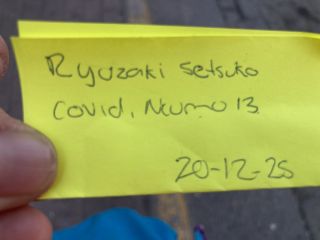 Ryuzaki Setsuko
Covid, Neumo 13
20-12-25